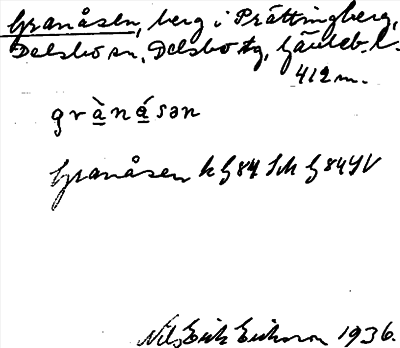 Granåsen, berg i Prättingberg,
Delsbo sn, Delsbo tg, Gävleb. l.
412 m.
grànásən
Granåsen k G 84 SM G 84 SV
Nils Erik Eriksson 1936.